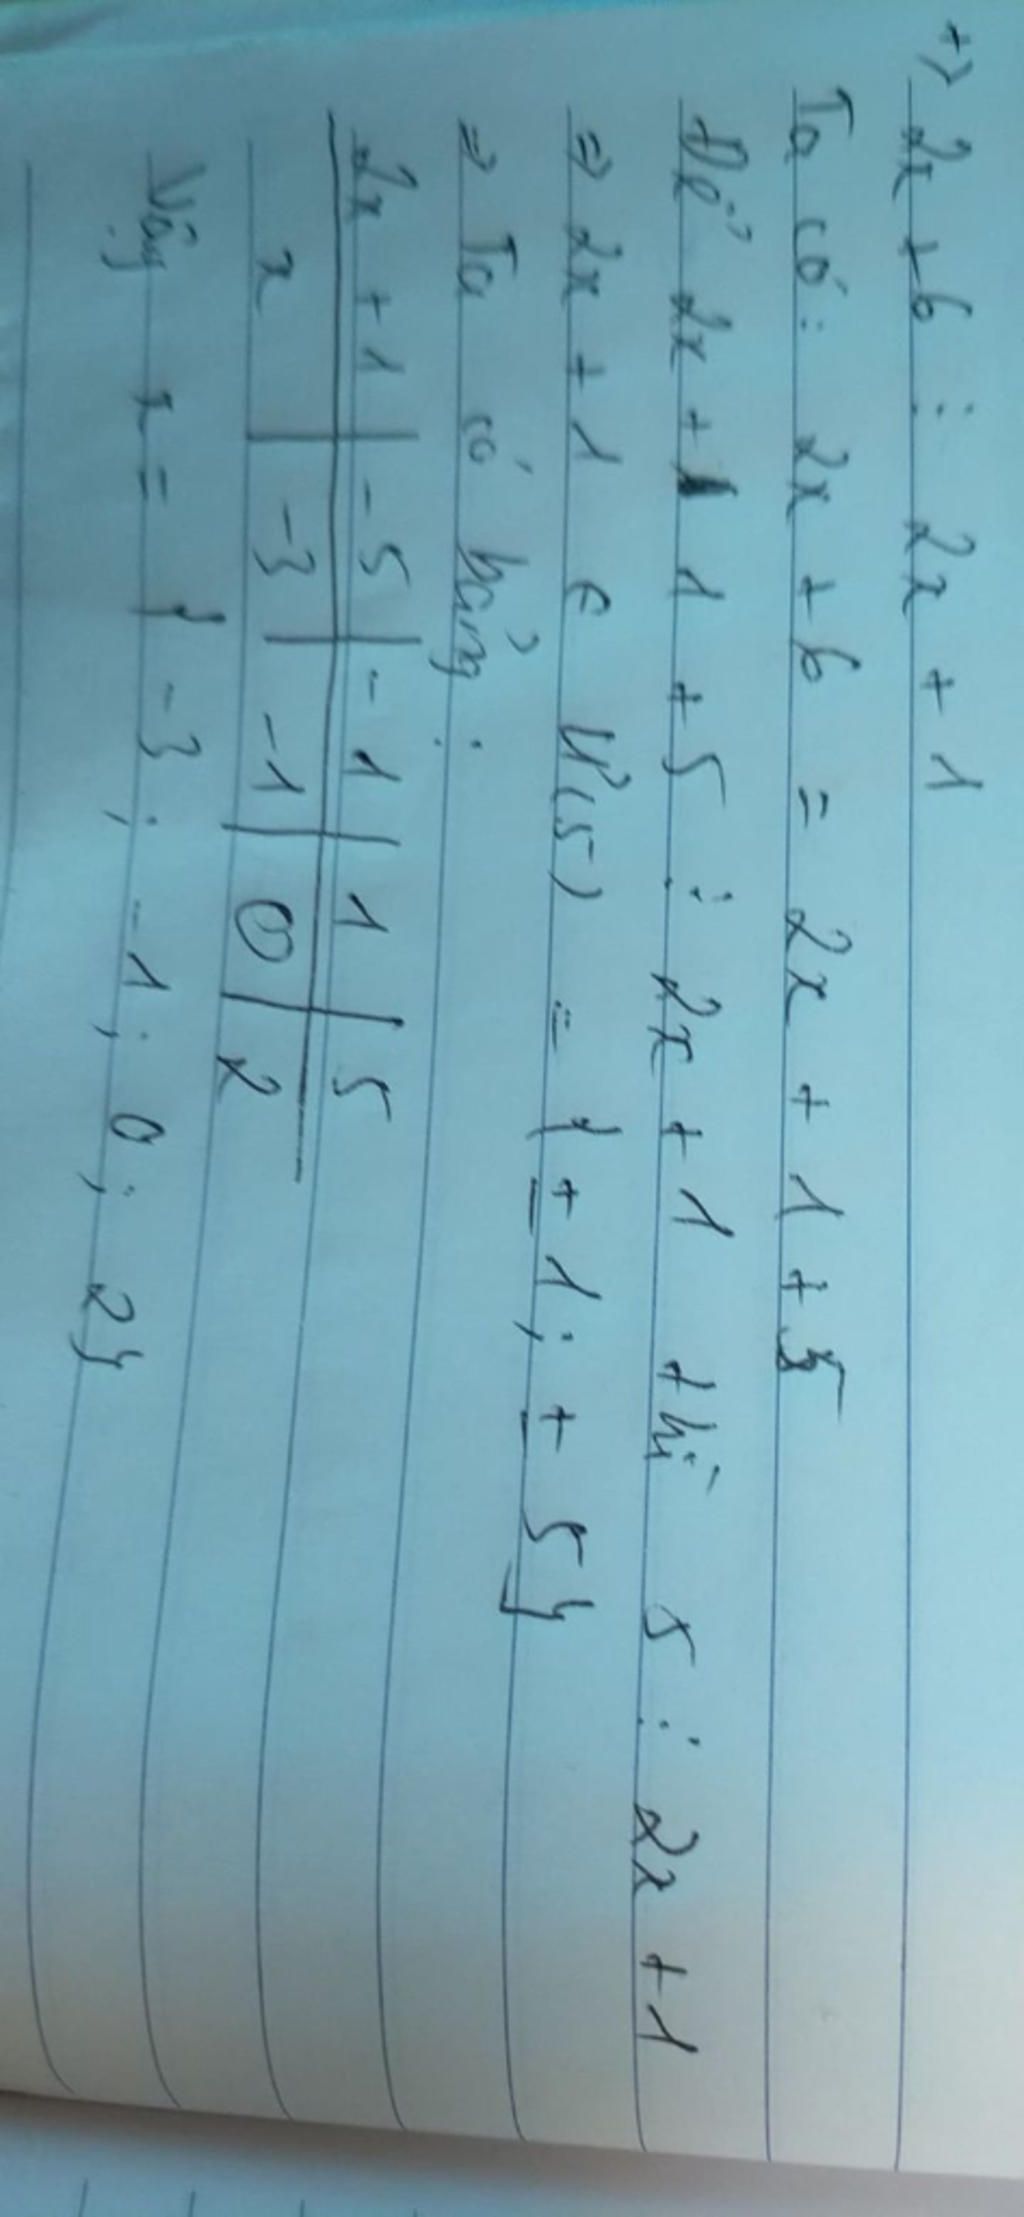 +) 2x + 6 ⋮ 2x + 1
Ta có: 2x + 6 = 2x + 1 + 5
Để 2x + 1 + 5 ⋮ 2x + 1 thì 5 ⋮ 2x + 1
=> 2x + 1 ∈ Ư(5) = { ± 1; ± 5}
=> Ta có bảng:
2x + 1 | -5 | -1 | 1 | 5
x | -3 | -1 | 0 | 2
Vậy x = { -3; -1; 0; 2}